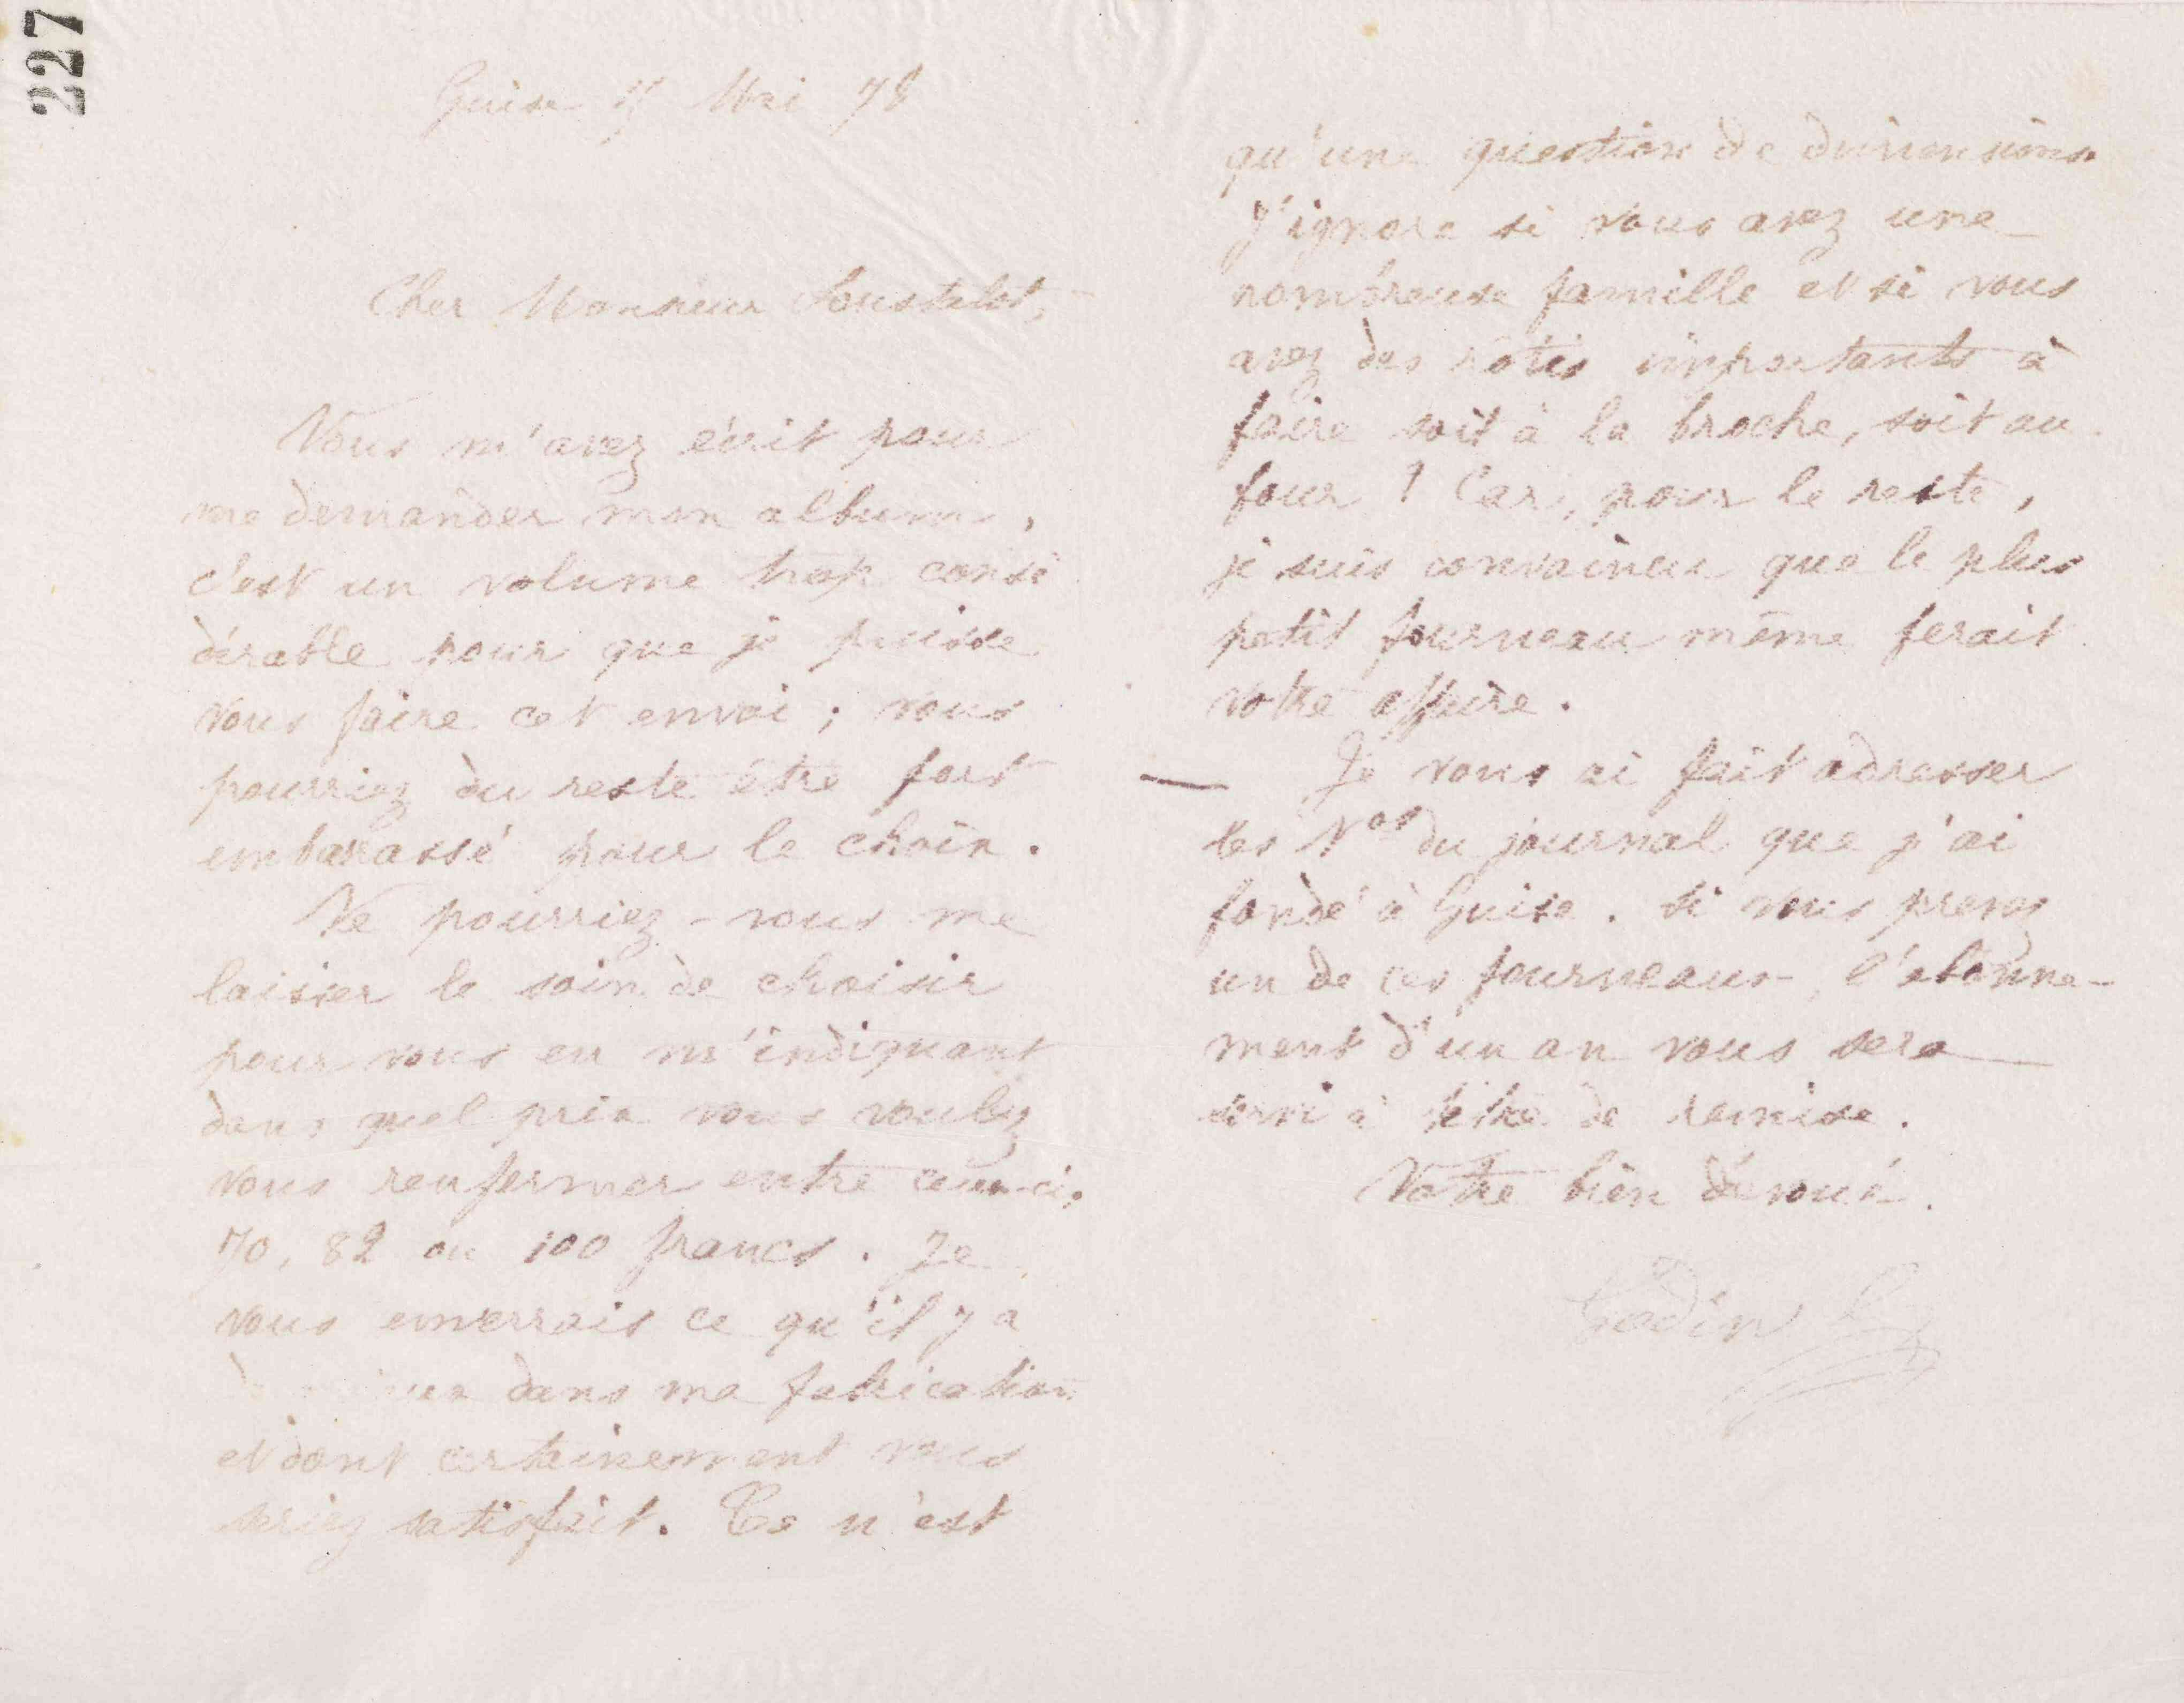 227
Guise Mai 78
Cher Monsieur Soustelot,
Vous m'avez écrit pour
me demander mon album,
c'est un volume trop consi
dérable pour que je puisse
vous faire cet envoi ; vous
pourriez du reste être fort
embarassé pour le choix.
Ne pourriez-vous me
laisser le soin de choisir
pour vous en m'indiquant
dans quel prix vous voulez
vous renfermer entre ceux-ci,
70, 82 ou 100 francs. Je
vous enverrais ce qu'il y a
dans ma fabrication
et dont certainement vous
seriez satisfait. Ce n'est
qu'une question de dimensions
J'ignore si vous avez une
nombreuse famille et si vous
avez des rôtis importants à
faire soit à la broche, soit au
four ? Car, pour le reste,
je suis convaincu que le plus
petit fourneau même ferait
votre affaire.
— Je vous ai fait adresser
les Nos du journal que j'ai
fondé à Guise. Si vous prenez
un de ces fourneaux, l'abonne-
ment d'un an vous sera
servi à titre de remise.
Votre bien dévoué.
Godin